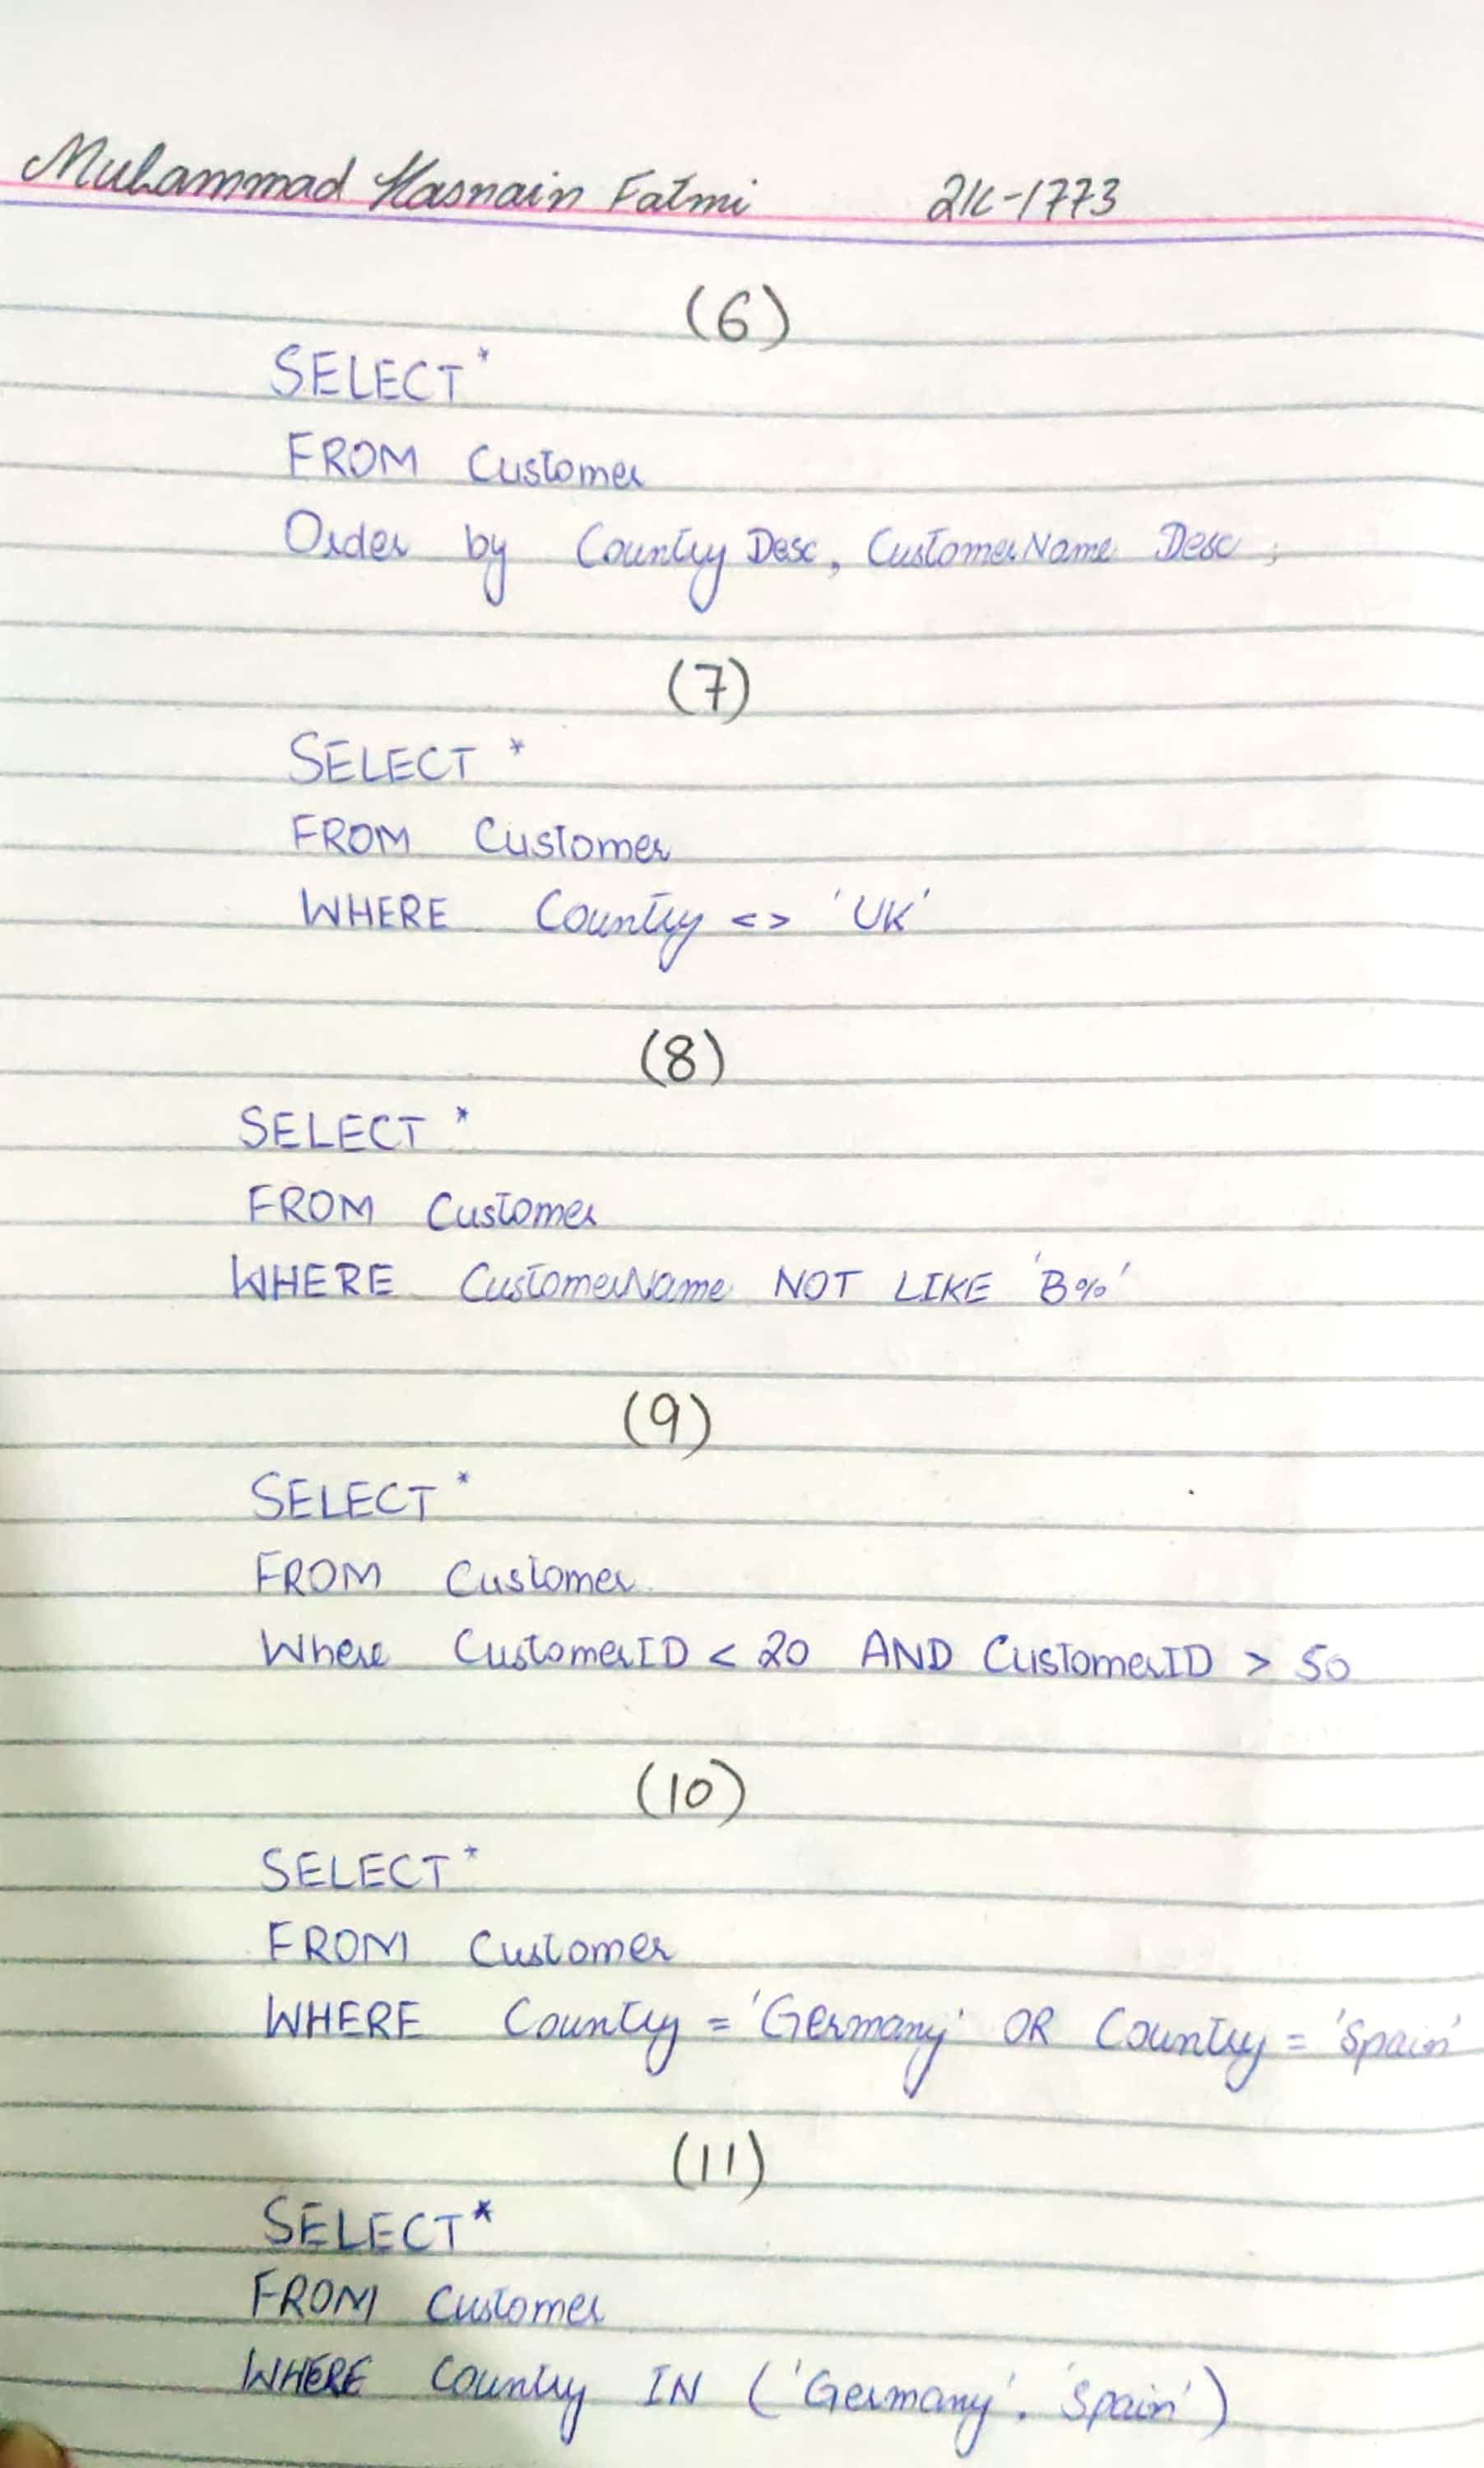 Muhammad Hasnain Fatmi 21K-1773
(6)
SELECT *
FROM Customer
Order by Country Desc, CustomerName Desc ;
(7)
SELECT *
FROM Customer
WHERE Country <> 'UK'
(8)
SELECT *
FROM Customer
WHERE CustomerName NOT LIKE 'B%'
(9)
SELECT *
FROM Customer
Where CustomerID < 20 AND CustomerID > 50
(10)
SELECT *
FROM Customer
WHERE Country = 'Germany' OR Country = 'Spain'
(11)
SELECT *
FROM Customer
WHERE Country IN ('Germany', 'Spain')